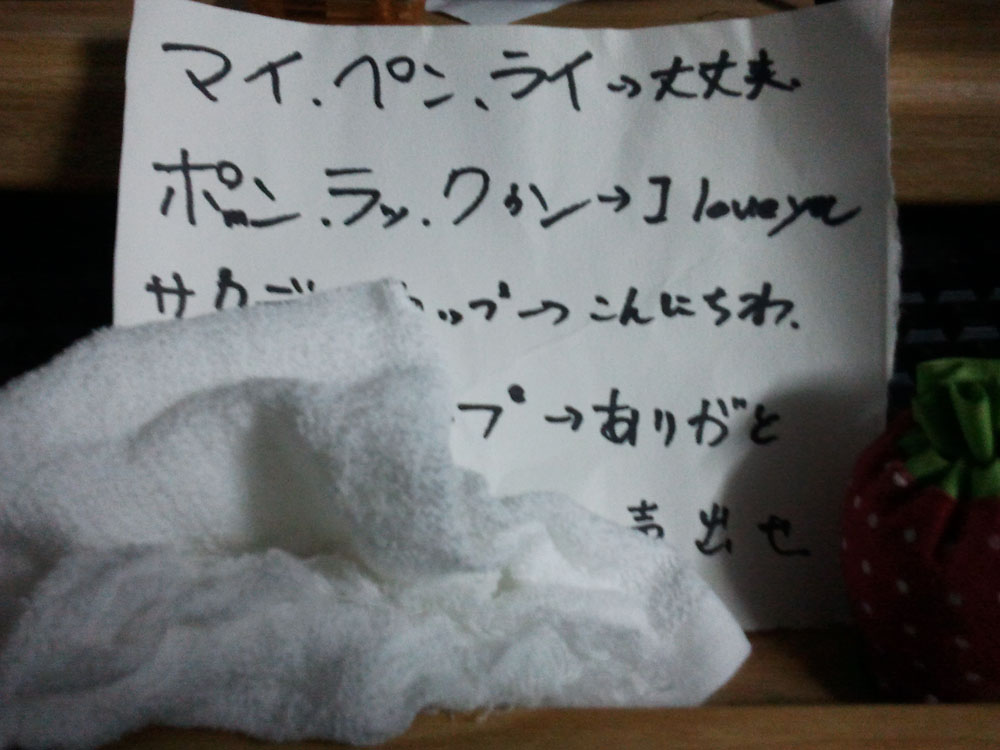 マイ、ペン、ライ→大丈夫
ポン、ラッ、クカン→I love you
サカデ ップ→こんにちわ、
プ→ありがと
声出せ